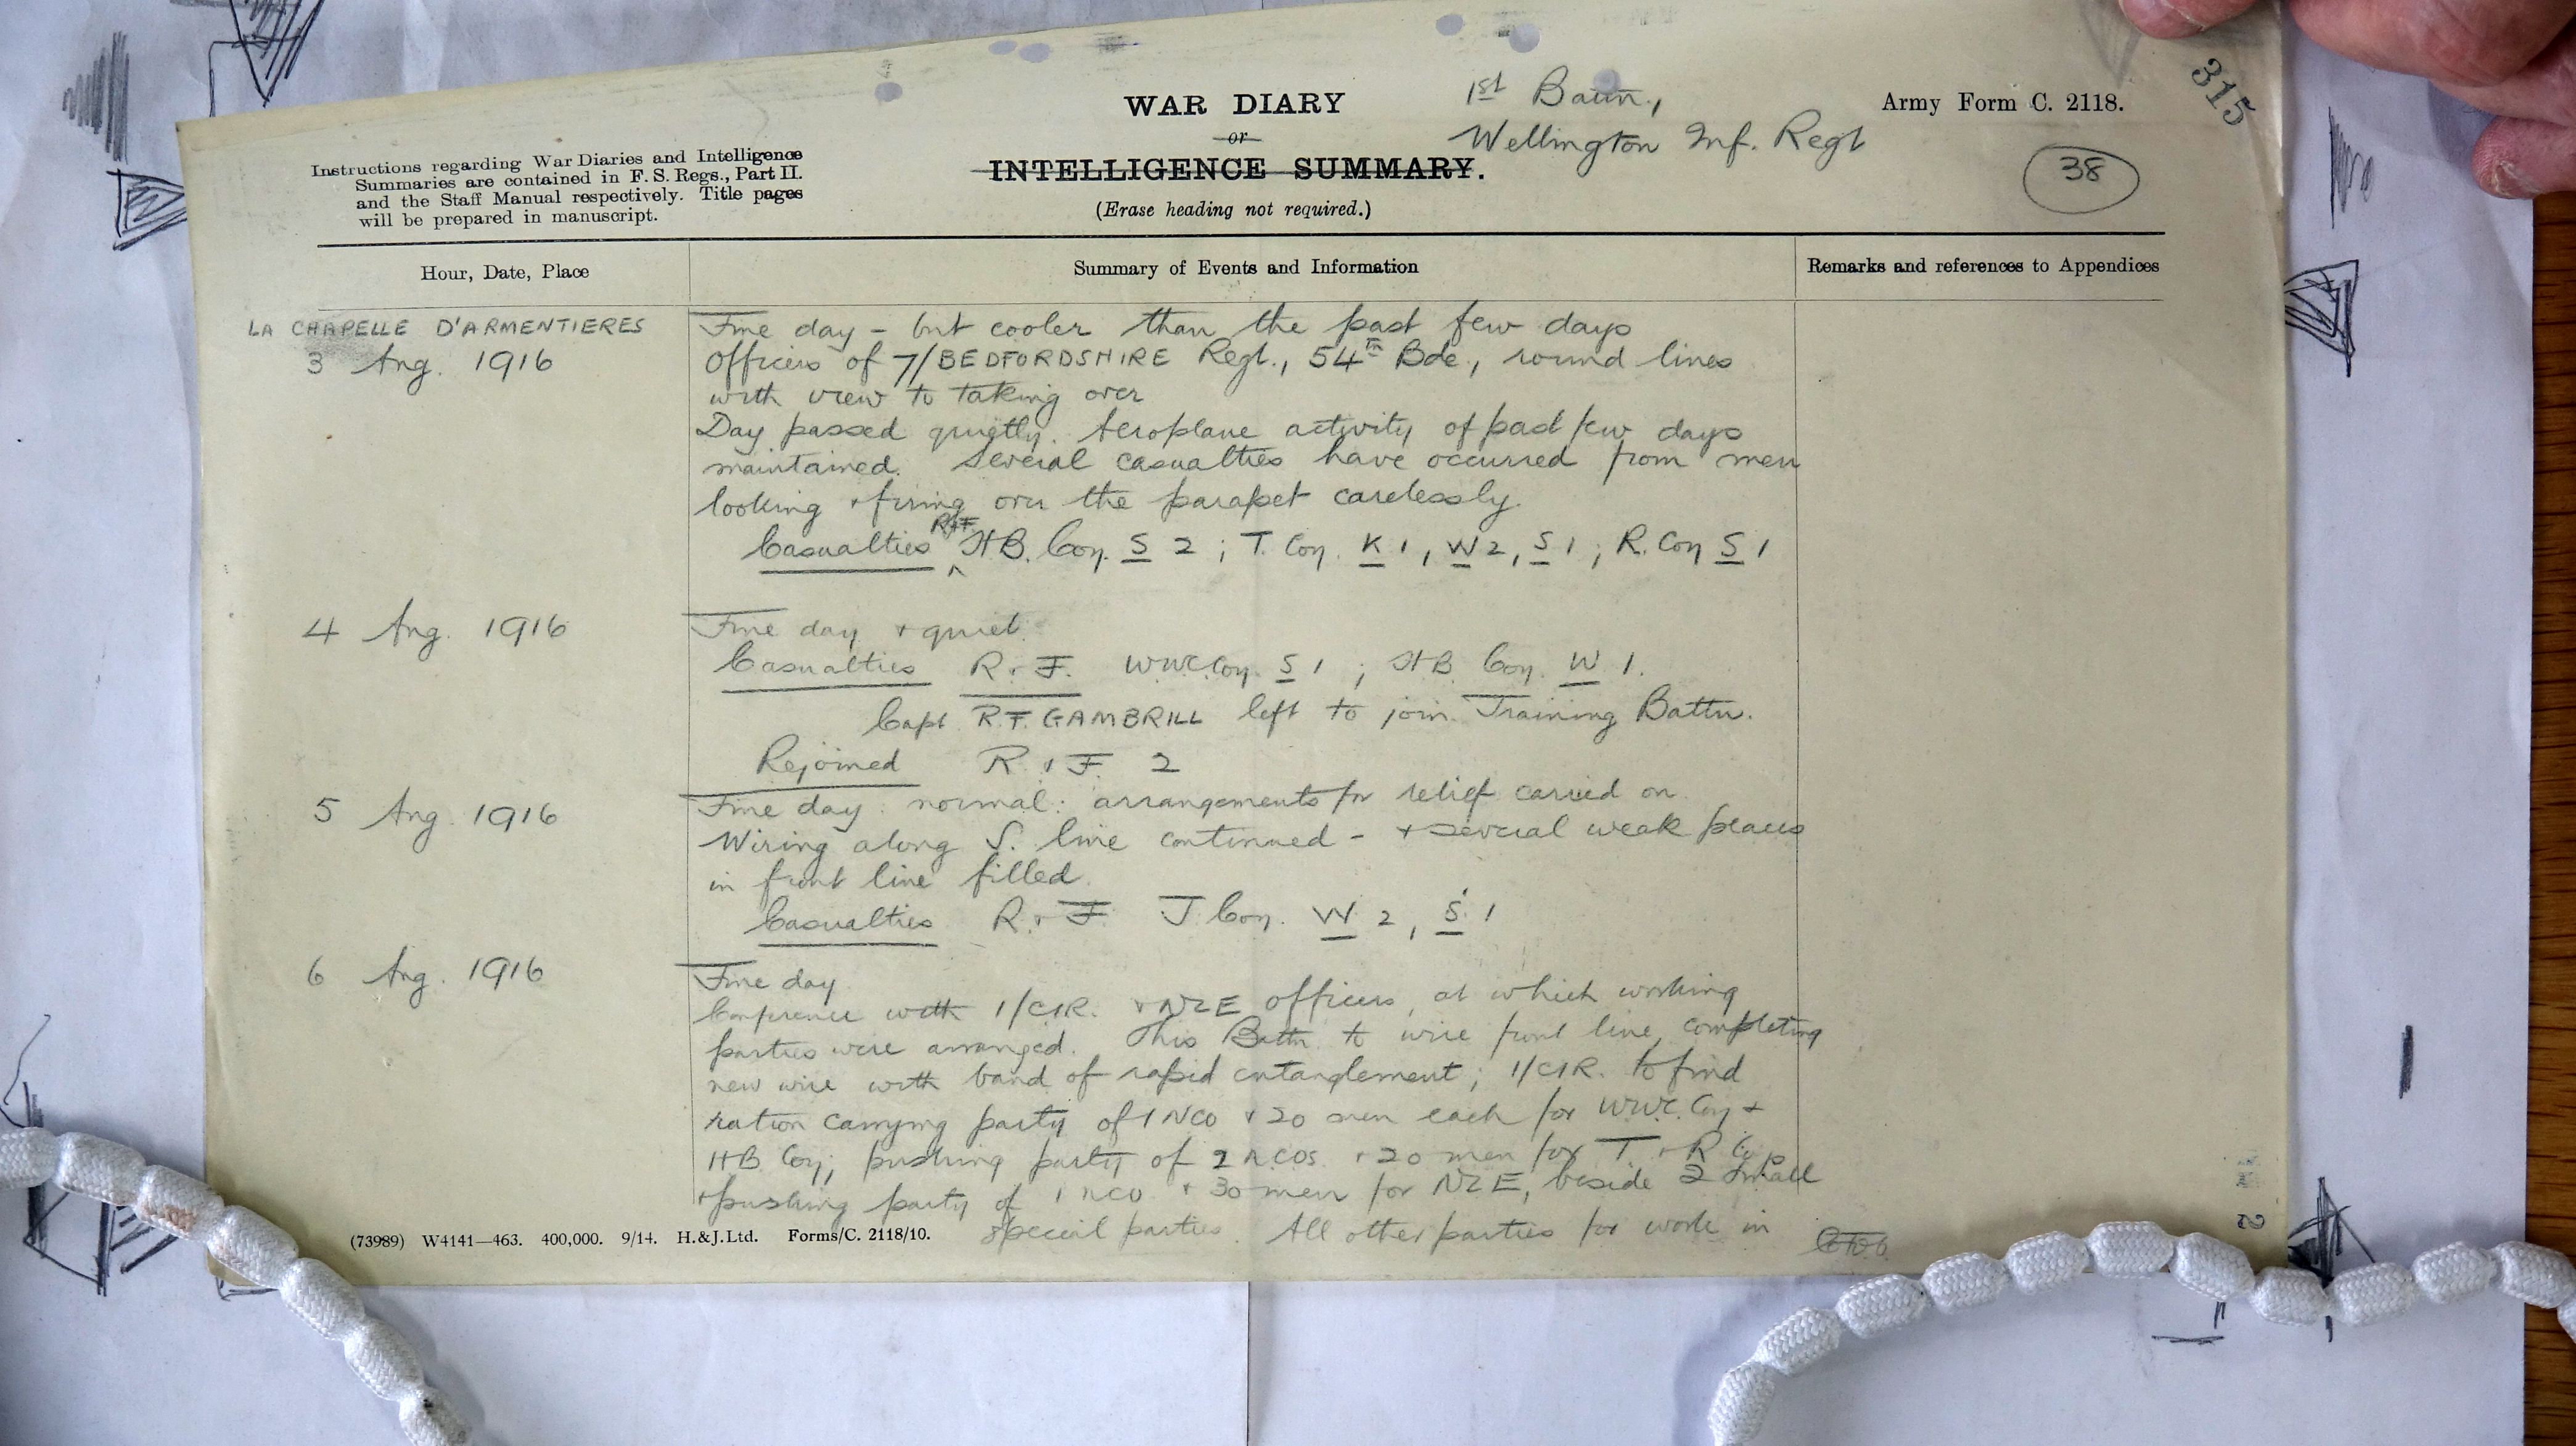 WAR DIARY
or
INTELLIGENCE SUMMARY.
(Erase heading not required.)
1st Battn.,
Wellington Inf. Regt
Army Form C. 2118.
315
38
Instructions regarding War Diaries and Intelligence
Summaries are contained in F. S. Regs., Part II.
and the Staff Manual respectively. Title pages
will be prepared in manuscript.
Hour, Date, Place
Summary of Events and Information
Remarks and references to Appendices
LA CHAPELLE D'ARMENTIERES
3 Aug. 1916
Fine day - but cooler than the past few days
Officers of 7/BEDFORDSHIRE Regt., 54th Bde., round lines
with view to taking over
Day passed quietly. Aeroplane activity of past few days
maintained. Several casualties have occurred from men
looking + firing over the parapet carelessly.
Casualties R+F HB. Coy. S 2 ; T. Coy. K 1, W 2, S 1 ; R. Coy S 1
4 Aug. 1916
Fine day + quiet.
Casualties R + F. WWC Coy. S 1 ; HB Coy. W 1.
Capt R.F. GAMBRILL left to join Training Battn.
Rejoined R + F. 2
5 Aug. 1916
Fine day : normal : arrangements for relief carried on.
Wiring along S. line continued - + several weak places
in front line filled.
Casualties R. + F. T Coy. W 2, S. 1
6 Aug. 1916
Fine day
Conference with 1/CIR. + NZE officers, at which working
parties were arranged. This Battn. to wire front line, completing
new wire with band of rapid entanglement ; 1/CIR. to find
ration carrying party of 1 NCO + 20 men each for WWC. Coy +
HB Coy; pushing party of 2 NCOs. + 20 men for T. + R Coys
+ pushing party of 1 NCO + 30 men for NZE, beside 2 small
special parties. All other parties for work in
(73989) W4141—463. 400,000. 9/14. H.&J.Ltd. Forms/C. 2118/10.